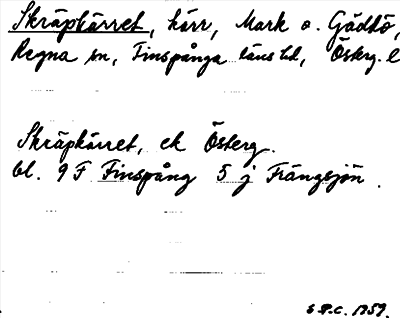 Skräpkärret, kärr, Mark o. Gäddö,
Regna sn, Finspånga läns hd, Österg. l
Skräpkärret, ek Österg.
bl. 9 F Finspång 5 j Frängsjön.
S P.C. 1959.